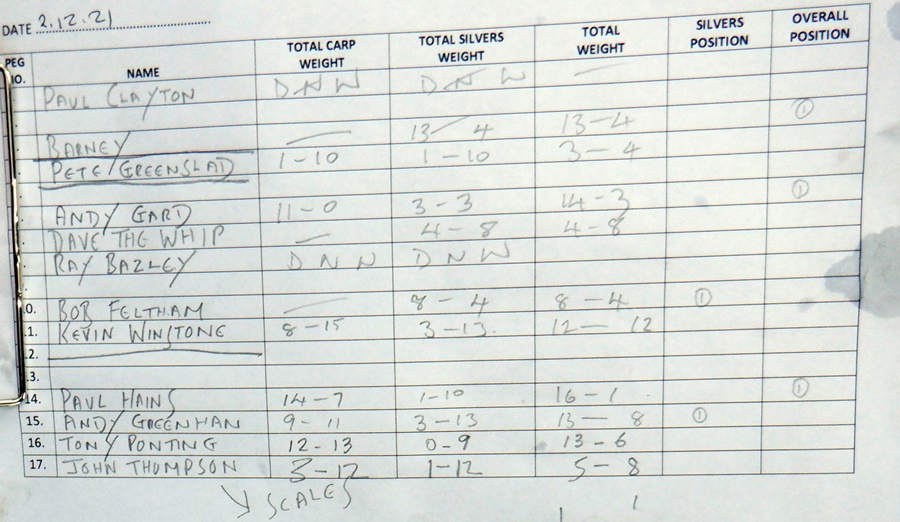 DATE 2.12.21
PEG NO. NAME TOTAL CARP WEIGHT TOTAL SILVERS WEIGHT TOTAL WEIGHT SILVERS POSITION OVERALL POSITION
PAUL CLAYTON DNW DNW —
BARNEY — 13 — 4 13 - 4 ①
PETE GREENSLAD 1 - 10 1 - 10 3 - 4
ANDY GARD 11 - 0 3 - 3 14 - 3 ①
DAVE THE WHIP — 4 - 8 4 - 8
RAY BAZLEY DNW DNW
0. BOB FELTHAM — 8 - 4 8 - 4 ①
.1. KEVIN WINSTONE 8 - 15 3 - 13. 12 — 12
.2.
.3.
14. PAUL HAINS 14 - 7 1 - 10 16 - 1 ①
15. ANDY GREENHAN 9 - 11 3 - 13 13 — 8 ①
16. TONY PONTING 12 - 13 0 - 9 13 - 6
17. JOHN THUMPSON 3 - 12 1 - 12 5 - 8
SCALES